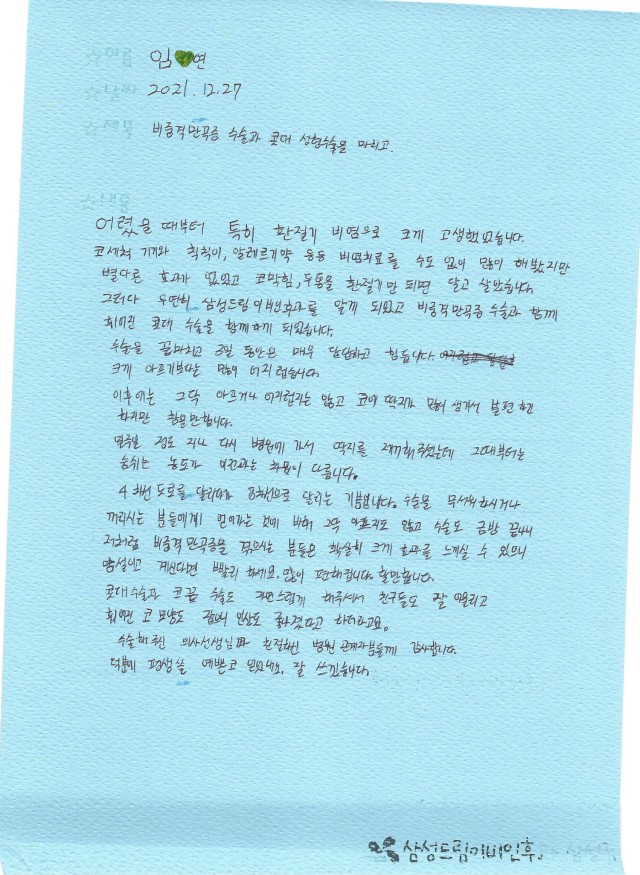 임 연
2021.12.27
비중격만곡증 수술과 콧대 성형수술을 마치고.
어렸을 때부터 특히 환절기 비염으로 크게 고생했었습니다.
코세척 기기와 칙칙이, 알레르기약 등등 비염치료를 수도 없이 많이 해봤지만
별다른 효과가 없었고 코막힘, 두통을 환절기만 되면 달고 살았습니다.
그러다 우연히 삼성드림이비인후과를 알게 되었고 비중격만곡증 수술과 함께
휘어진 콧대 수술을 함께하게 되었습니다.
수술을 끝마치고 3일 동안은 매우 답답하고 힘듭니다.
크게 아프기보다는 많이 어지럽습니다.
이후에는 그닥 아프거나 어지럽지는 않고 코에 딱지가 많이 생겨서 불편하긴
하지만 참을만합니다.
일주일 정도 지나 다시 병원에 가서 딱지를 제거해주셨는데 그때부터는
숨쉬는 농도가 이전과는 차원이 다릅니다.
4차선 도로를 달리다가 8차선으로 달리는 기분입니다. 수술을 무서워하시거나
꺼리시는 분들에게 얻어가는 것에 비해 그닥 아프지도 않고 수술도 금방 끝나니
저처럼 비중격만곡증을 겪으시는 분들은 확실히 크게 효과를 느끼실 수 있으니
망설이고 계신다면 빨리 하세요. 많이 편해집니다. 할만합니다.
콧대수술과 코끝 수술도 자연스럽게 해주셔서 친구들도 잘 어울리고
휘어진 코 모양도 잡히니 인상도 좋아졌다고 하더라고요.
수술해주신 의사선생님과 친절하신 병원 관계자분들께 감사합니다.
덕분에 평생 쓸 예쁜코 얻었네요. 잘 쓰겠습니다.
삼성드림이비인후